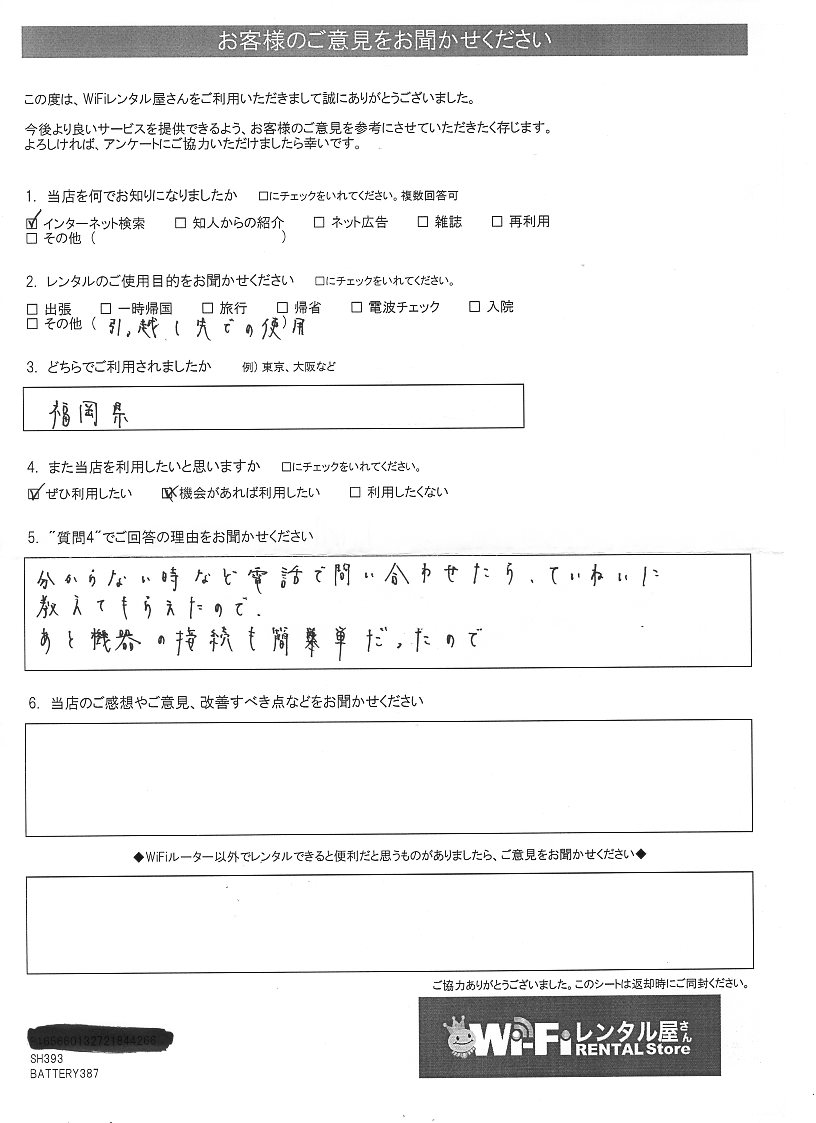 お客様のご意見をお聞かせください
この度は、WiFiレンタル屋さんをご利用いただきまして誠にありがとうございました。
今後より良いサービスを提供できるよう、お客様のご意見を参考にさせていただきたく存じます。
よろしければ、アンケートにご協力いただけましたら幸いです。
1. 当店を何でお知りになりましたか □にチェックをいれてください。複数回答可
☑ インターネット検索 □ 知人からの紹介 □ ネット広告 □ 雑誌 □ 再利用
□ その他 ( )
2. レンタルのご使用目的をお聞かせください □にチェックをいれてください。
□ 出張 □ 一時帰国 □ 旅行 □ 帰省 □ 電波チェック □ 入院
□ その他 ( 引っ越し先での使)用
3. どちらでご利用されましたか 例) 東京、大阪など
福岡県
4. また当店を利用したいと思いますか □にチェックをいれてください。
☑ ぜひ利用したい ☑ 機会があれば利用したい □ 利用したくない
5. "質問4"でご回答の理由をお聞かせください
分からない時など電話で問い合わせたら、ていねいに
教えてもらえたので、
あと機器の接続も簡単だったので
6. 当店のご感想やご意見、改善すべき点などをお聞かせください
◆WiFiルーター以外でレンタルできると便利だと思うものがありましたら、ご意見をお聞かせください◆
ご協力ありがとうございました。このシートは返却時にご同封ください。
Wi-Fiレンタル屋さん
RENTAL Store
SH393
BATTERY387